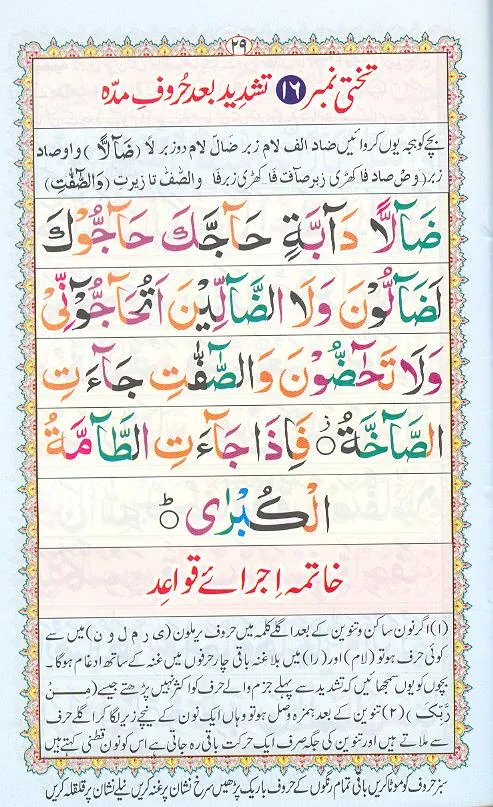 ۲۹
تختی نمبر ۱۶ تشدید بعد حُروفِ مدّہ
بچے کو ہجے یوں کروائیں ضاد الف لام زبر ضَالّ لام دو زبر لاً (ضَآلًّا) واو صاد
زبر (وَصْ صاد فا کھڑی زبر صآفّ فا کھڑی زبر فٰا وَالصّٰفّٰ تا زیر تِ (وَالصّٰٓفّٰتِ)
ضَآلًّا دَآبَّةٍ حَآجَّكَ حَآجُّوْكَ
لَضَآلُّوْنَ وَلَا الضَّآلِّيْنَ اَتُحَآجُّوْٓنِّيْ
وَلَا تَحٰٓضُّوْنَ وَالصّٰٓفّٰتِ جَآءَتِ
الصَّآخَّةُ ۫ فَاِذَا جَآءَتِ الطَّآمَّةُ
الْكُبْرٰى ۖ
خاتمہ اِجرائے قواعِد
(۱) اگر نون ساکن و تنوین کے بعد اگلے کلمہ میں حروف یرملون (ی ر م ل و ن) میں سے
کوئی حرف ہو تو (لام) اور (را) میں بلا غنہ باقی چار حرفوں میں غنہ کے ساتھ ادغام ہوگا۔
بچوں کو یوں سمجھائیں کہ تشدید سے پہلے جزم والے حرف کو اکثر نہیں پڑھتے جیسے (مِنْ
رَّبِّكَ) (۲) تنوین کے بعد ہمزہ وصل ہو تو وہاں ایک نون کے نیچے زیر لگا کر اگلے حرف
سے ملاتے ہیں اور تنوین کی جگہ صرف ایک حرکت باقی رہ جاتی ہے اس کو نون قطنی کہتے ہیں
سبز حروف کو موٹا کریں باقی تمام رنگوں کے حروف باریک پڑھیں سرخ نشان پر غنہ کریں نیلے نشان پر قلقلہ کریں